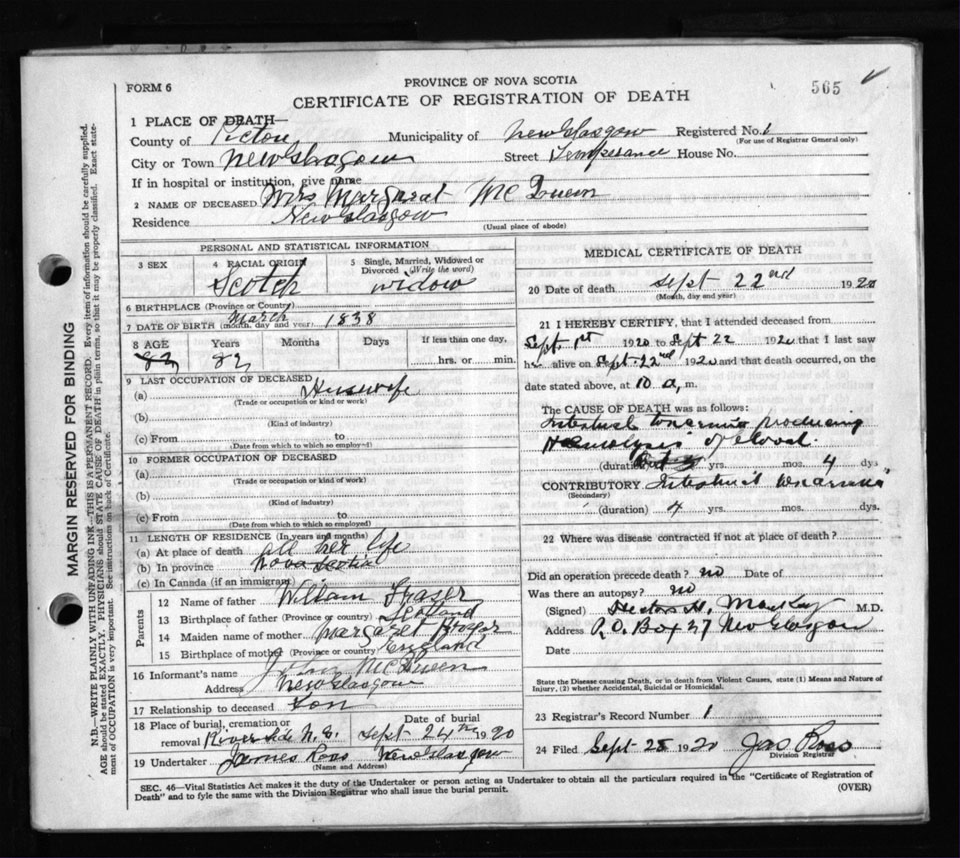 FORM 6
PROVINCE OF NOVA SCOTIA
565
CERTIFICATE OF REGISTRATION OF DEATH
1 PLACE OF DEATH—
County of Pictou Municipality of New Glasgow Registered No. 1
(For use of Registrar General only)
City or Town New Glasgow Street Temperance House No.
If in hospital or institution, give name
2 NAME OF DECEASED Mrs Margaret McQueen
Residence New Glasgow
(Usual place of abode)
PERSONAL AND STATISTICAL INFORMATION
3 SEX
4 RACIAL ORIGIN
Scotch
5 Single, Married, Widowed or Divorced (Write the word)
widow
6 BIRTHPLACE (Province or Country)
7 DATE OF BIRTH (month, day and year) March 1838
8 AGE Years Months Days If less than one day,
82 hrs. or min.
9 LAST OCCUPATION OF DECEASED
(a) Housewife
(Trade or occupation or kind or work)
(b)
(Kind of industry)
(c) From to
(Date from which to which so employed)
10 FORMER OCCUPATION OF DECEASED
(a)
(Trade or occupation or kind of work)
(b)
(Kind of industry)
(c) From to
(Date from which to which so employed)
11 LENGTH OF RESIDENCE (In years and months)
(a) At place of death all her life
(b) In province Nova Scotia
(c) In Canada (if an immigrant)
Parents
12 Name of father William Fraser
13 Birthplace of father Scotland
14 Maiden name of mother Margaret
15 Birthplace of mother (Province or country) England
16 Informant's name John McQueen
Address New Glasgow
17 Relationship to deceased Son
18 Place of burial, cremation or removal Riverside N.S. Date of burial Sept 24th 1920
19 Undertaker James Ross New Glasgow
(Name and Address)
MEDICAL CERTIFICATE OF DEATH
20 Date of death Sept 22nd 1920
(Month, day and year)
21 I HEREBY CERTIFY, that I attended deceased from
Sept 1st 1920 to Sept 22 1920 that I last saw
h alive on Sept 22nd 1920 and that death occurred, on
date stated above, at 10 a. m.
The CAUSE OF DEATH was as follows:
Intestinal toxaemia producing
Haemolysis of blood.
(duration) yrs. mos. 4 dys
CONTRIBUTORY Intestinal
(Secondary)
(duration) 4 yrs. mos. dys.
22 Where was disease contracted if not at place of death?
Did an operation precede death? no Date of
Was there an autopsy? no
(Signed) Hector H. MacKay M.D.
Address P.O. Box 27 New Glasgow
Date
State the Disease causing Death, or in death from Violent Causes, state (1) Means and Nature of
Injury, (2) whether Accidental, Suicidal or Homicidal.
23 Registrar's Record Number 1
24 Filed Sept 25 1920 Jas Ross
Division Registrar
SEC. 46—Vital Statistics Act makes it the duty of the Undertaker or person acting as Undertaker to obtain all the particulars required in the "Certificate of Registration of
Death" and to fyle the same with the Division Registrar who shall issue the burial permit.
(OVER)
MARGIN RESERVED FOR BINDING
N.B.—WRITE PLAINLY WITH UNFADING INK—THIS IS A PERMANENT RECORD. Every item of information should be carefully supplied.
AGE should be stated EXACTLY. PHYSICIANS should STATE CAUSE OF DEATH in plain terms, so that it may be properly classified. Exact statement
of OCCUPATION is very important. See instructions on back of Certificate.